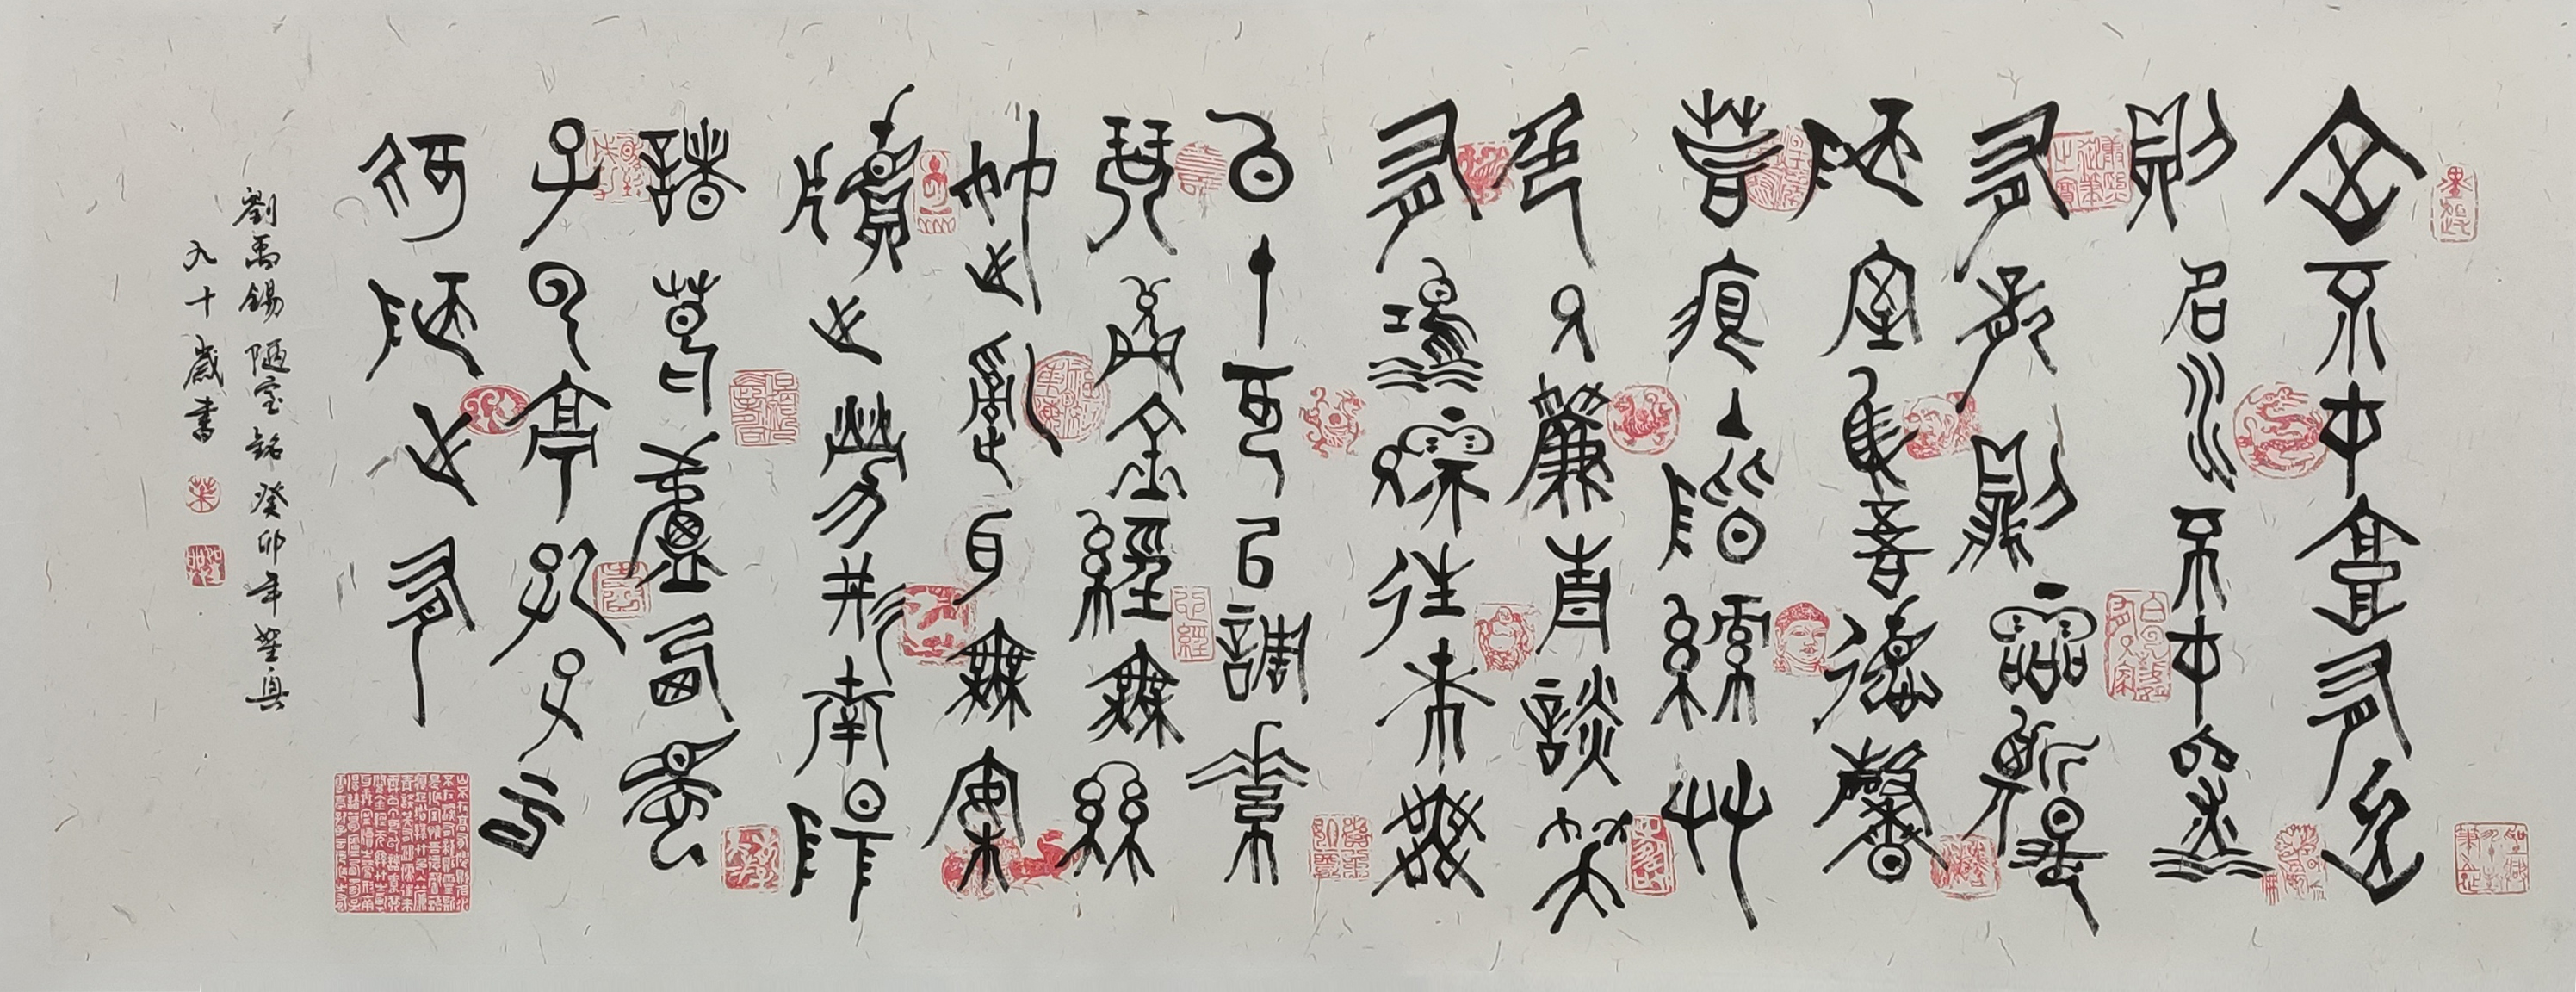 山不在高有仙
則名水不在深
有龍則靈斯是
陋室惟吾德馨
苔痕上階綠艸
色入簾青談笑
有鴻儒往來無
白丁可以調素
琴閱金經無絲
竹之亂耳無案
牘之勞形南陽
諸葛廬西蜀
子雲亭孔子云
何陋之有
劉禹錫陋室銘癸卯年
九十歲書